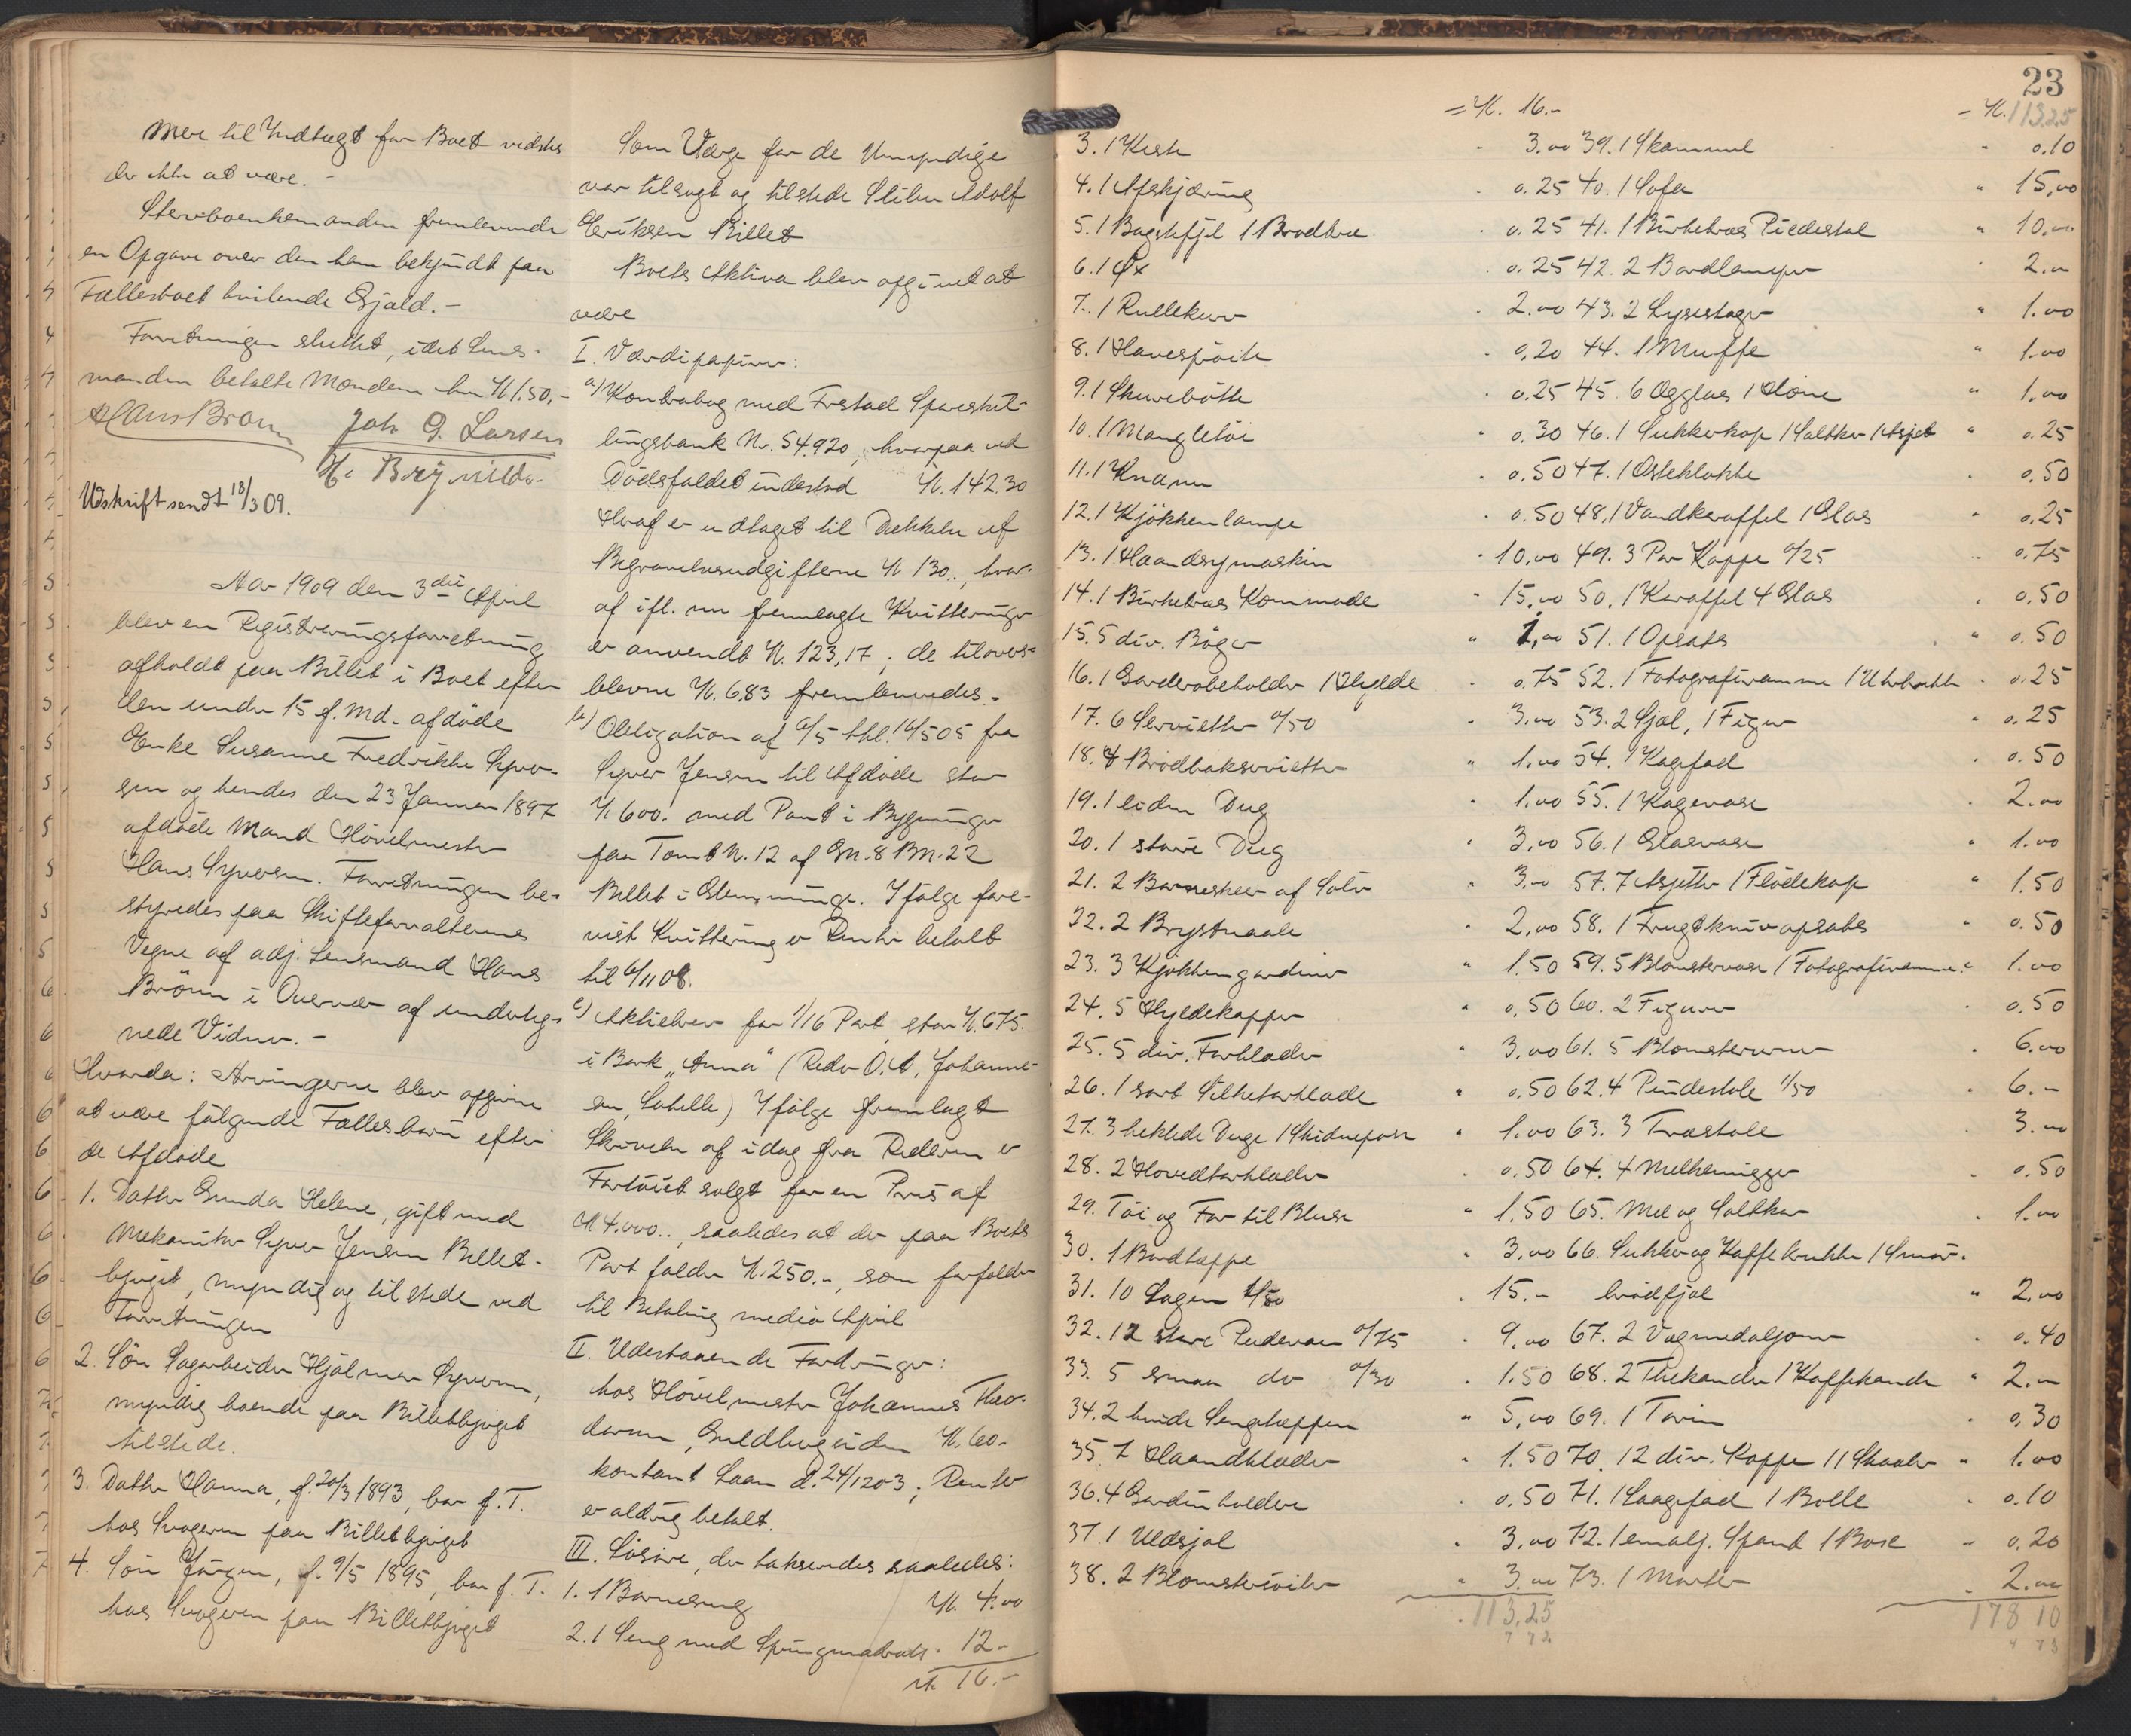 Mere til Indtægt for Boet vidstes
der ikke at være. -
Stervboenkemanden fremleverede
en Opgave over den ham bekjendt paa
Fællesboet hvilende Gjæld. -
Forretningen sluttet, idet Lens-
manden betalte Mændene hver Kr 1.50,-
Hans Brønn Joh G. Larsen
Udskrift sendt 18/3 09.
Aar 1909 den 3die April
blev en Registreringsforretning
afholdt paa Billet i Boet efter
den under 15 f. Md. afdøde
Enke Susanne Fredrikke Syver-
sen og hendes den 23 Januar 1897
afdøde Mand Høvelmester
Hans Syversen. Forretningen be-
styredes paa Skifteforvalterens
Vegne af adj. Lensmand Hans
Brönn i Overvær af underteg-
nede Vidner. -
Hvorda: Arvingerne blev opgivne
at være følgende Fællesbørn efter
de Afdøde
1. Datter Gunda Helene, gift med
Mekaniker Syver Jensen Billet-
bjerget, myndig og tilstede ved
Forretningen
2. Søn Sagarbeider Hjalmar Syversen,
myndig boende paa Billetbjerget
tilstede.
3. Datter Hanna, f. 20/3 1893, bor f. T.
hos Svogeren paa Billetbjerget
4. Søn Jørgen, f. 9/5 1895, bor f. T.
hos Svogeren paa Billetbjerget
Som Værge for de Umyndige
var tilsagt og tilstede Stiber Adolf
Eriksen Billet
Boets Aktiva blev opgivet at
være
I. Værdipapirer:
a) Kontrabog med Frstad Spareskil-
lingsbank Nr. 54.920, hvorpaa ved
Dødsfaldet indestod Kr. 142.30
Hvoraf er udtaget til Dækkelse af
Begravelsesudgifterne Kr 130.., hvor-
af ifl. nu fremlagte Kvitteringer
er anvendt Kr. 123,17; de tilovers-
blevne Kr. 6.83 fremleveredes. -
b) Obligation af 6/5 thl. 16/5 05 fra
Syver Jensen til Afdøde stor
Kr 600. med Pant i Bygninger
paa Tomt N. 12 af Gn. 8 Bn. 22
Billet i Glemminge. Ifølge fore-
vist Kvittering er Renter betalt
til 6/11 08.
c) Aktiebrev for 1/16 Part, stor Kr. 675.
i Bark "Anna" (Reder O. A. Johanne-
sen, Labelle) Ifølge fremlagt
Skrivelse af idag fra Rederen er
Fartøiet solgt for en Pris af
Kr 4.000.., saaledes at der paa Boets
Part falder Kr. 250.-, som forfalder
til Betaling medio April
II. Udestaaende Fordringer:
hos Høvelmester Johannes Theo-
dorsen, Guldbergsiden Kr. 60.-
kontant Laan d. 24/12 03; Renter
er aldrig betalt.
III. Løsøre, der takseredes saaledes:
1. 1 Barneseng Kr. 4.00
2. 1 Seng med Springmadrats 12.-
Kr. 16.-
23
= Kr. 16.-
3. 1 Kiste " 3.00
4. 1 Afskjæring " 0.25
5. 1 Bagstefjel 1 Brødtræ " 0.25
6. 1 Øx " 0.25
7. 1 Rullekurv " 2.00
8. 1 Havesprøite " 0.20
9. 1 Skurebøtte " 0.25
10. 1 Mangletøi " 0.30
11. 1 Kværn " 0.50
12. 1 Kjøkkenlampe " 0.50
13. 1 Haandsymaskin " 10.00
14. 1 Birketræs Kommode " 15.00
15. 5 div. Bøger " 1.00
16. 1 Garderobeholder 1 Hylde " 0.75
17. 6 Servietter a/50 " 3.00
18. 4 Brødbakservietter " 1.00
19. 1 liden Dug " 1.00
20. 1 større Dug " 3.00
21. 2 Barneskeer af Sølv " 3.-
22. 2 Brystnaale " 2.00
23. 3 Kjøkkengardiner " 1.50
24. 5 Hyldekapper " 0.50
25. 5 div. Forklæder " 3.00
26. 1 sort Silketørklæde " 0.50
27. 3 heklede Duge 1 Skidnepose " 1.00
28. 2 Hovedtørklæder " 0.50
29. Tøi og For til Bluse " 1.50
30. 1 Bordtæppe " 3.00
31. 10 Lagen 1/50 " 15.-
32. 12 store Pudevar a/75 " 9.00
33. 5 smaa do a/30 " 1.50
34. 2 hvide Sengetæpper " 5.00
35. 7 Haandklæder " 1.50
36. 4 Gardinholdere " 0.50
37. 1 Uldsjal " 3.00
38. 2 Blomstersøiler " 3.00
113.25
= Kr. 113.25
39. 1 Skammel " 0.10
40. 1 Sofa " 15.00
41. 1 Birketræs Piedestal " 10.00
42. 2 Bordlamper " 2.00
43. 2 Lysestager " 1.00
44. 1 Muffe " 1.00
45. 6 Ægglas 1 Høne " 1.00
46. 1 Sukkerkop 1 Saltkar 1 Asjet " 0.25
47. 1 Osteklokke " 0.50
48. 1 Vandkaraffel 1 Glas " 0.25
49. 3 Par Kopper a/25 " 0.75
50. 1 Karaffel 4 Glas " 0.50
51. 1 Opsats " 0.50
52. 1 Fotografiramme 1 Uhrholder " 0.25
53. 2 Sjal, 1 Figur " 0.25
54. 1 Kagefad " 0.50
55. 1 Kagevase " 2.00
56. 1 Glasvase " 1.00
57. 7 Asjetter 1 Flødekop " 1.50
58. 1 Frugtknivopsats " 0.50
59. 5 Blomstervaser 1 Fotografiramme " 1.00
60. 2 Figurer " 0.50
61. 5 Blomsterurner " 6.00
62. 4 Pindestole 1/50 " 6.-
63. 3 Træstole " 3.00
64. 4 Melkemugger " 0.50
65. Mel og Saltkar " 1.00
66. Sukker og Kaffekrukke 1 Smør-
brødfjøl " 2.00
67. 2 Vægmedaljoner " 0.40
68. 2 Thekander 1 Kaffekande " 2.00
69. 1 Terrin " 0.30
70. 12 div. Kopper 11 Skaaler " 1.00
71. 1 Laagefad 1 Bolle " 0.10
72. 1 emalj. Spand 1 Boxe " 0.20
73. 1 Morter " 2.00
178 10